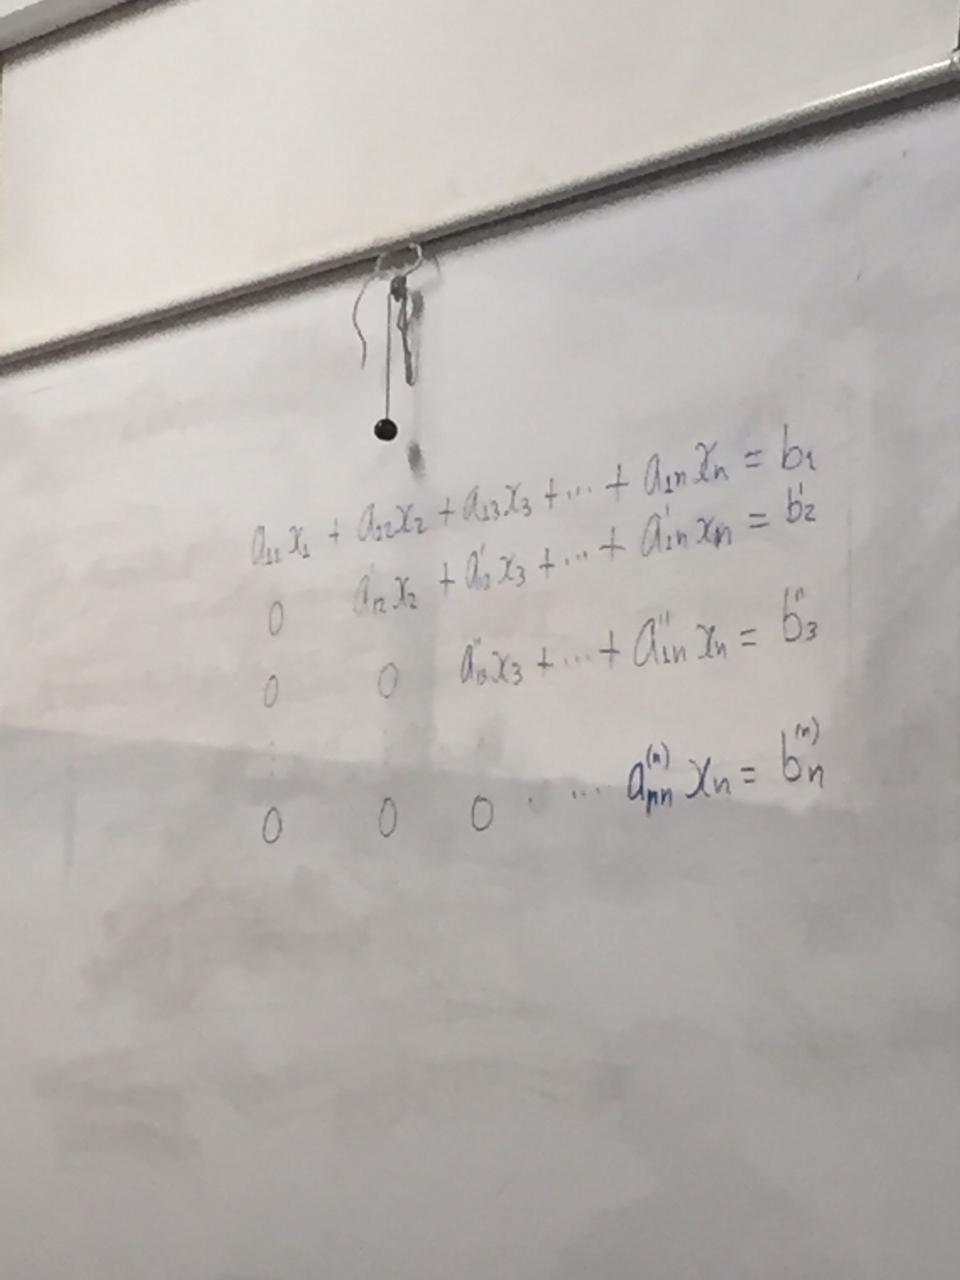 a₁₁x₁ + a₁₂x₂ + a₁₃x₃ + ... + a₁ₙxₙ = b₁
0 a'₁₂x₂ + a'₁₃x₃ + ... + a'₁ₙxₙ = b'₂
0 0 a''₁₃x₃ + ... + a''₁ₙxₙ = b''₃
0 0 0 · ... aₙₙ⁽ⁿ⁾ xₙ = bₙ⁽ⁿ⁾